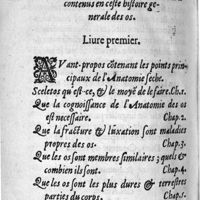 contenus en ceste histoire ge-
nerale des os.
Liure premier.
AVant-propos cōtenant les points prin-
cipaux de l'Anatomie seche.
Sceletos qu'est-ce, & le moyē de faire. Ch.1.
Que la cognoissance de l'Anatomie des os
est necessaire. Chap.2.
Que la fracture & luxation sont maladies
propres des os. Chap.3.
Que les os sont membres similaires; quels &
combien ils sont. Chap.4.
Que les os sont les plus dures & terrestres
parties du corps. Chap.5.